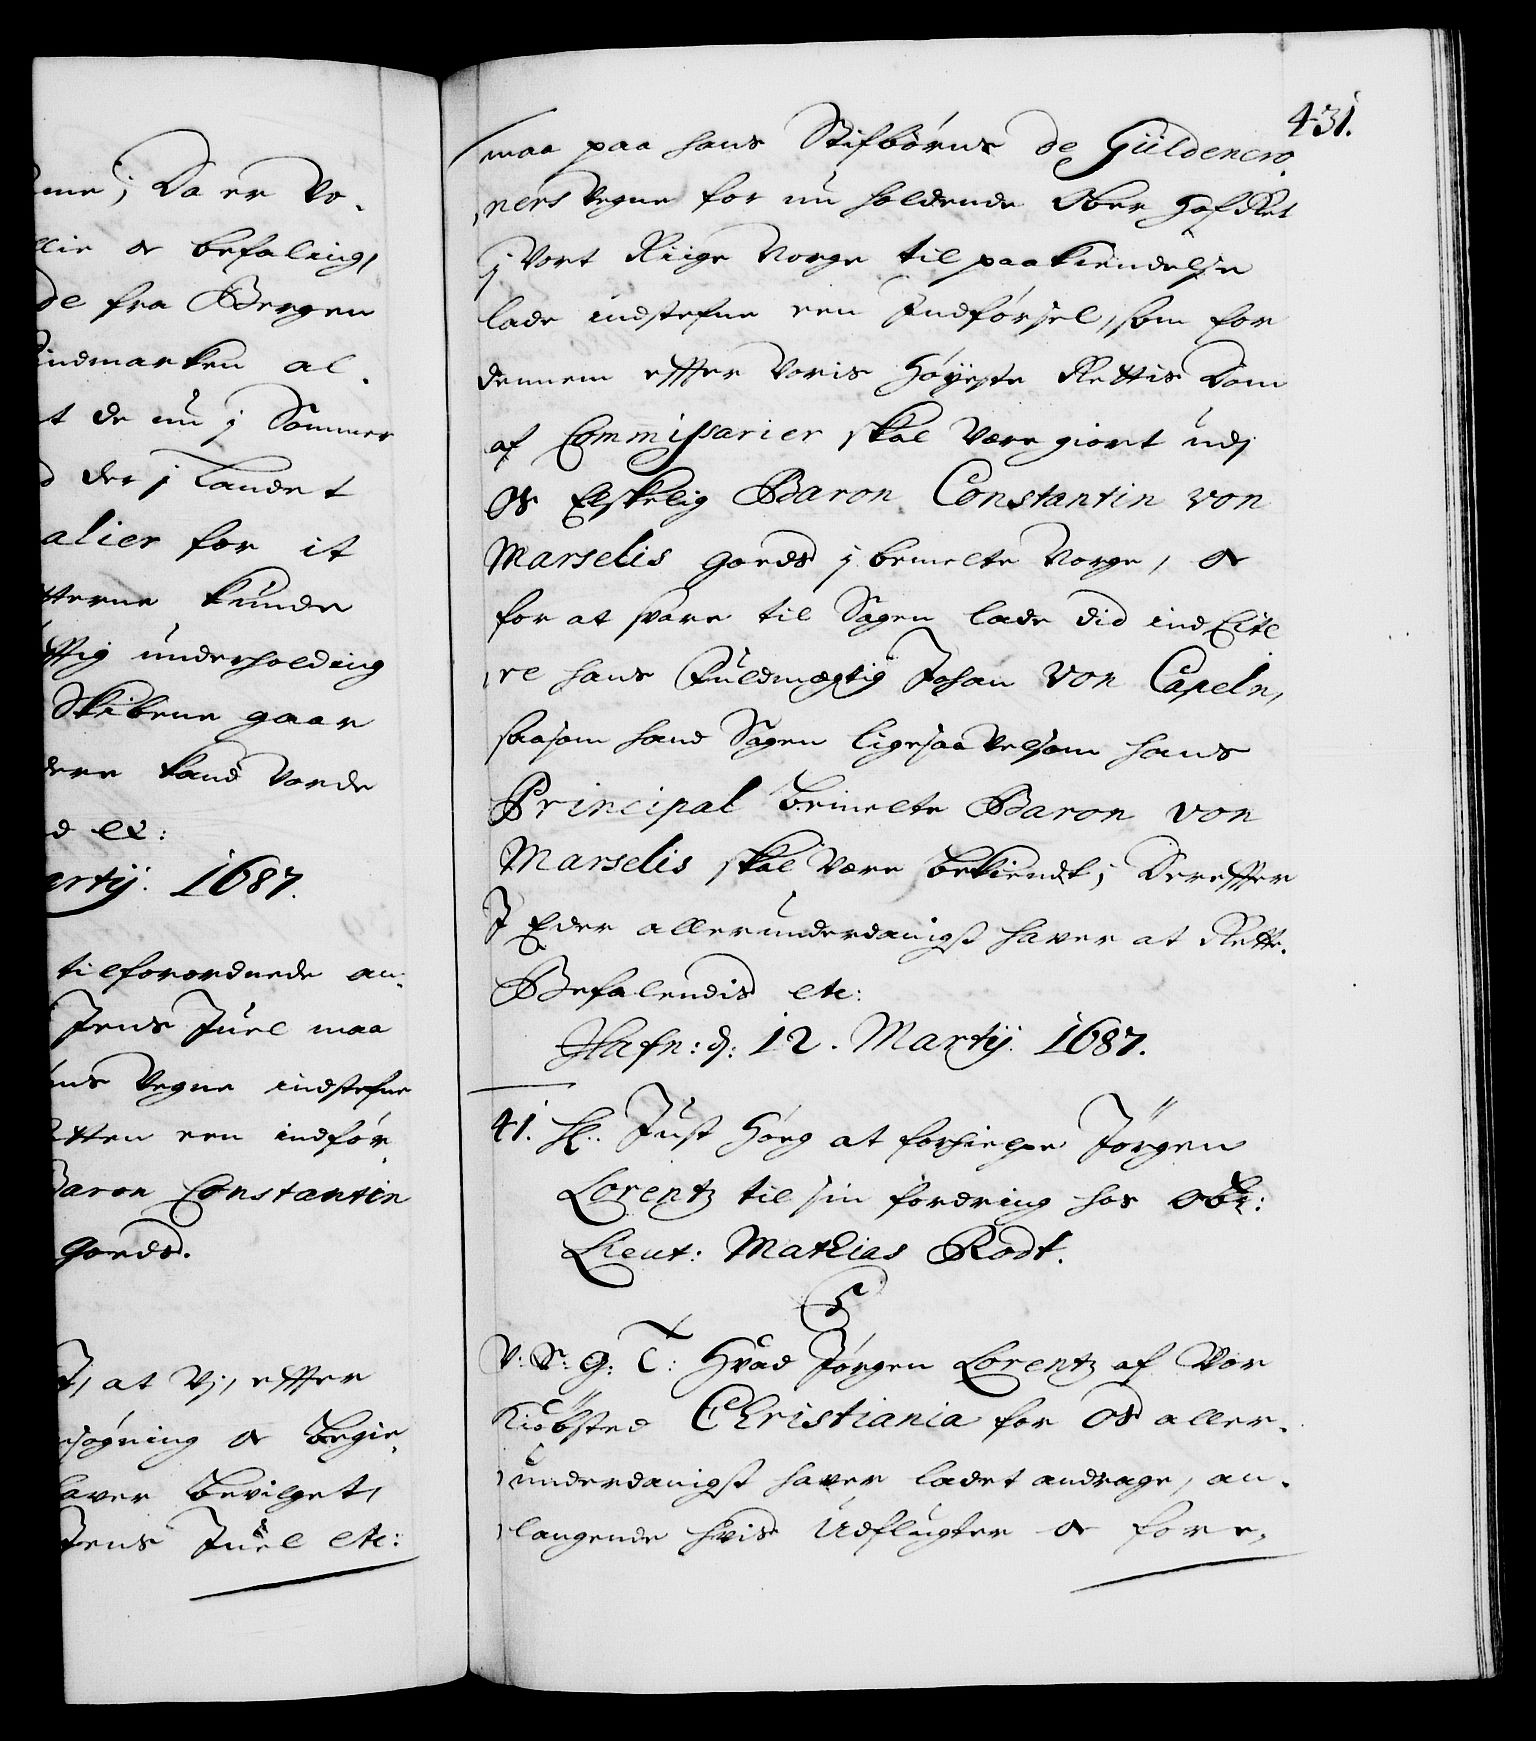 ime; Da er Vo-
llie oc befaling,
de fra Bergen
indmarken al-
t de nu j Sommer
d der j Landet
alier for it
tterne kunde
ttig underholding
Skibene gaar
dere kand vorde
d etc:
artij. 1687.
tilforordnede an-
Jens Juel maa
ns Vegne indstefne
etten een indför-
Baron Constantin
Goeds.
at Vj, effter
søgning oc Begie-
haver Bevilget,
Jens Juel etc:
431.
maa paa hans Stifbörns de Güldencro-
ners Vegne for nu holdende Ober Hof Ret
j Vort Riige Norge til paakiendelse
lade indstefne een Indförsel, som for
dennem effter Voris Höyeste Rettis Dom
af Commissarier skal være giort udj
Os Elskelig Baron Constantin von
Marselis Goeds j bemelte Norge, oc
for at svare til Sagen lade did ind Cite-
re hans Fuldmægtig Johan von Capeln,
saasom hand Sagen ligesaa velsom hans
Principal bemelte Baron von
Marselis skal være bekiendt; Dereffter
J Eder allerunderdanigst haver at Rette.
Befalendis etc:
Hafn: d: 12. Martij. 1687.
41. Hr. Just Höeg at forhielpe Jörgen
Lorentz til sin fordring hos Obr:
Lieut: Mathias Rodt.
C5
V: S: G: T: Hvad Jörgen Lorentz af Vor
Kiöbsted Christiania for Os aller-
underdanigst haver ladet andrage, an-
langende hvis Udflugter oc fore-